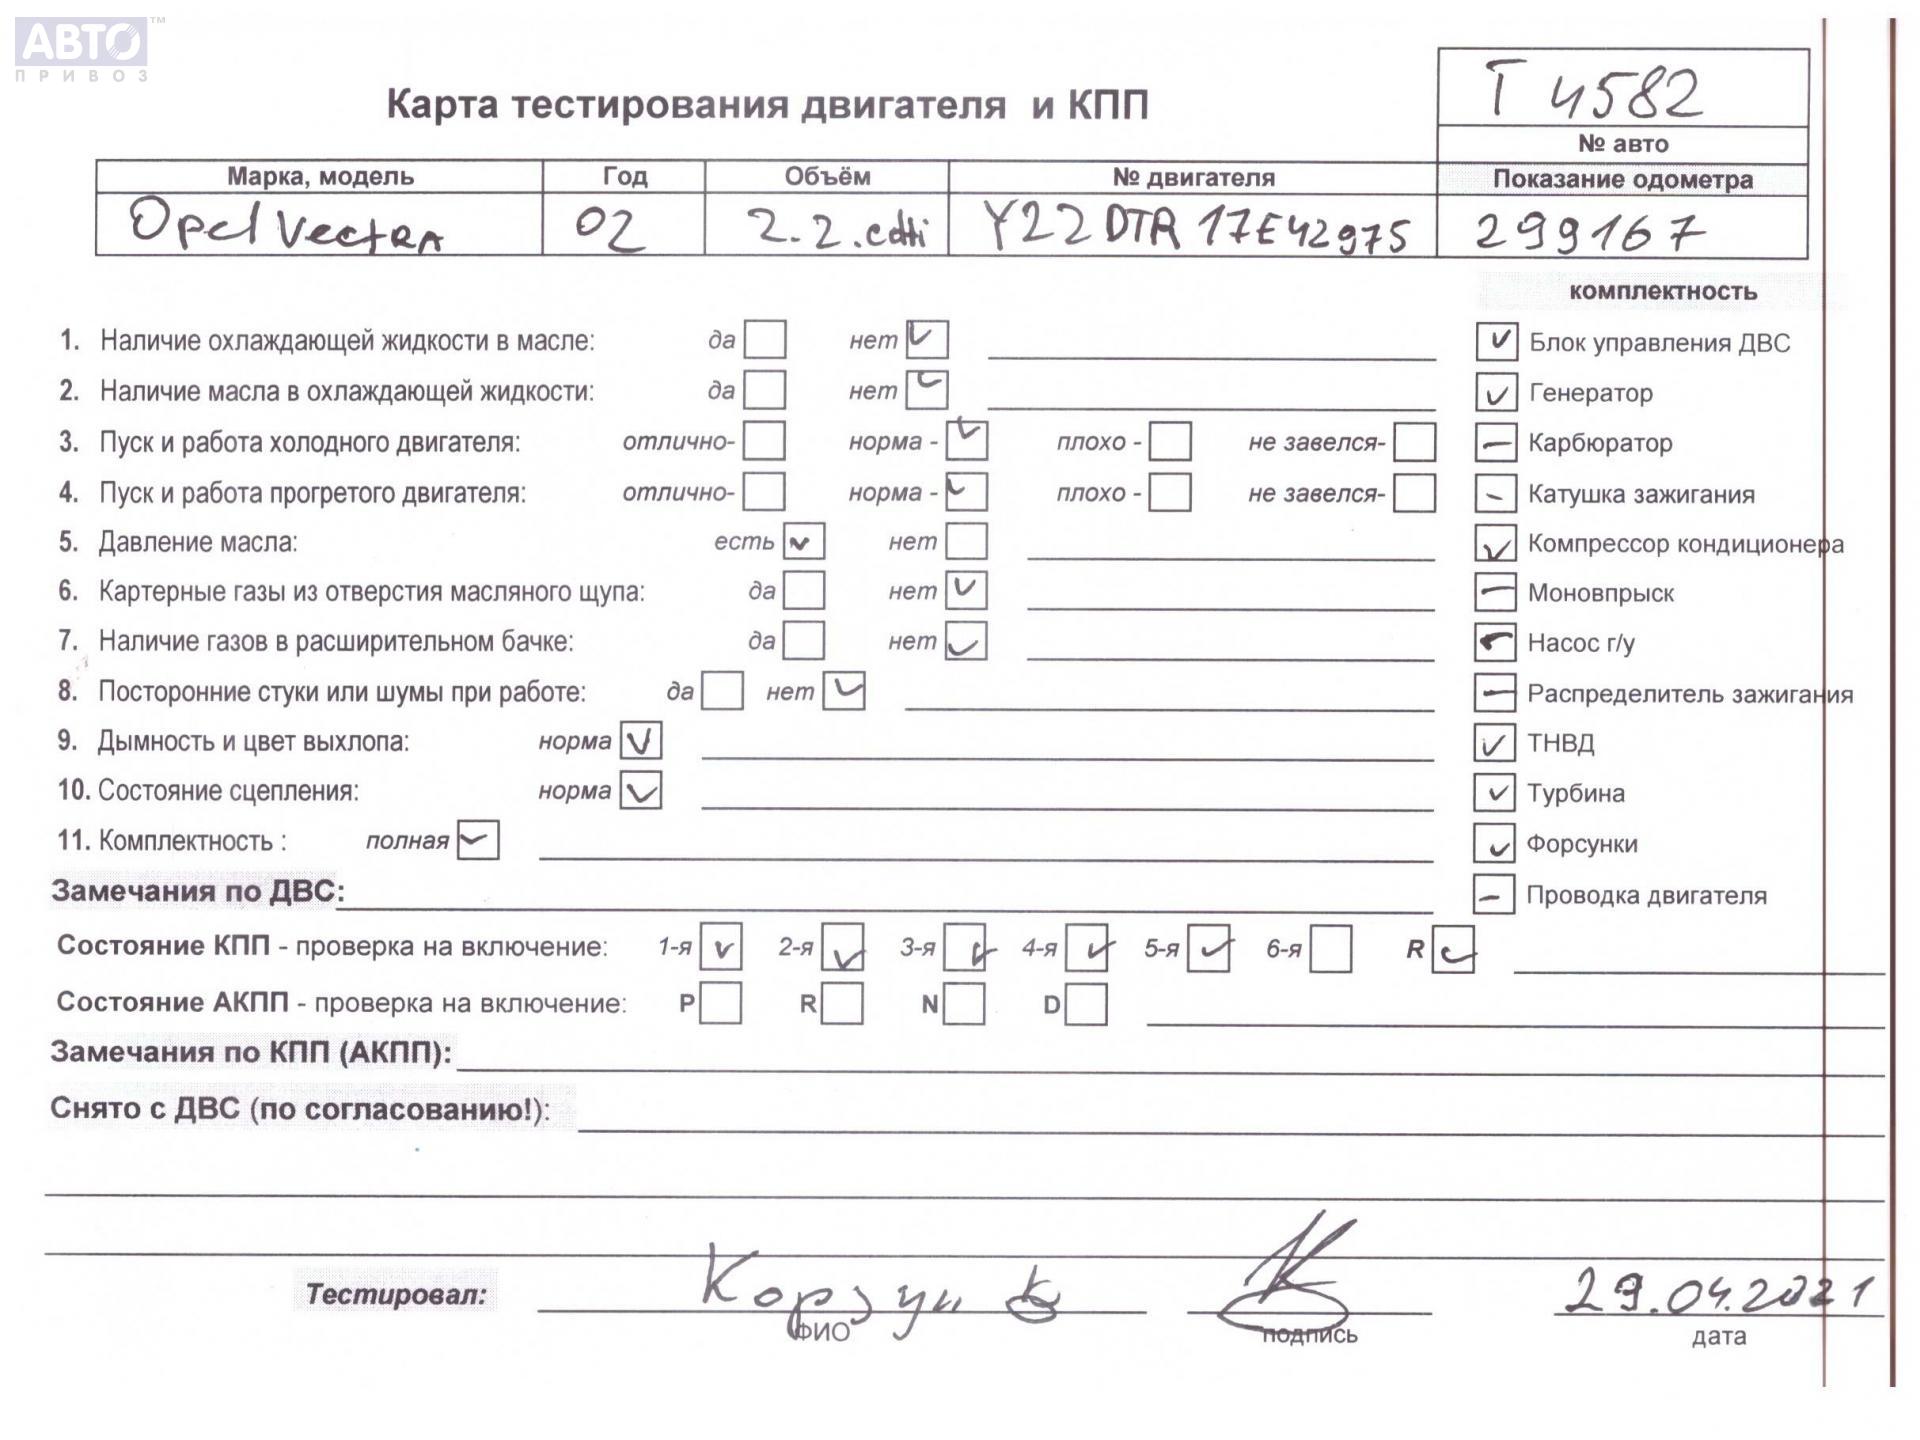 АВТО™
ПРИВОЗ
Т 4582
Карта тестирования двигателя и КПП
№ авто
Марка, модель Год Объём № двигателя Показание одометра
Opel Vectra 02 2.2.cdti Y22DTR 17E42975 299167
комплектность
1. Наличие охлаждающей жидкости в масле: да нет ✓ ✓ Блок управления ДВС
2. Наличие масла в охлаждающей жидкости: да нет ✓ ✓ Генератор
3. Пуск и работа холодного двигателя: отлично- норма - ✓ плохо - не завелся- – Карбюратор
4. Пуск и работа прогретого двигателя: отлично- норма - ✓ плохо - не завелся- – Катушка зажигания
5. Давление масла: есть ✓ нет ✓ Компрессор кондиционера
6. Картерные газы из отверстия масляного щупа: да нет ✓ – Моновпрыск
7. Наличие газов в расширительном бачке: да нет ✓ ✓ Насос г/у
8. Посторонние стуки или шумы при работе: да нет ✓ – Распределитель зажигания
9. Дымность и цвет выхлопа: норма ✓ ✓ ТНВД
10. Состояние сцепления: норма ✓ ✓ Турбина
11. Комплектность : полная ✓ ✓ Форсунки
Замечания по ДВС: – Проводка двигателя
Состояние КПП - проверка на включение: 1-я ✓ 2-я ✓ 3-я ✓ 4-я ✓ 5-я ✓ 6-я R ✓
Состояние АКПП - проверка на включение: P R N D
Замечания по КПП (АКПП):
Снято с ДВС (по согласованию!):
Тестировал: Корзун 29.04.2021
ФИО подпись дата